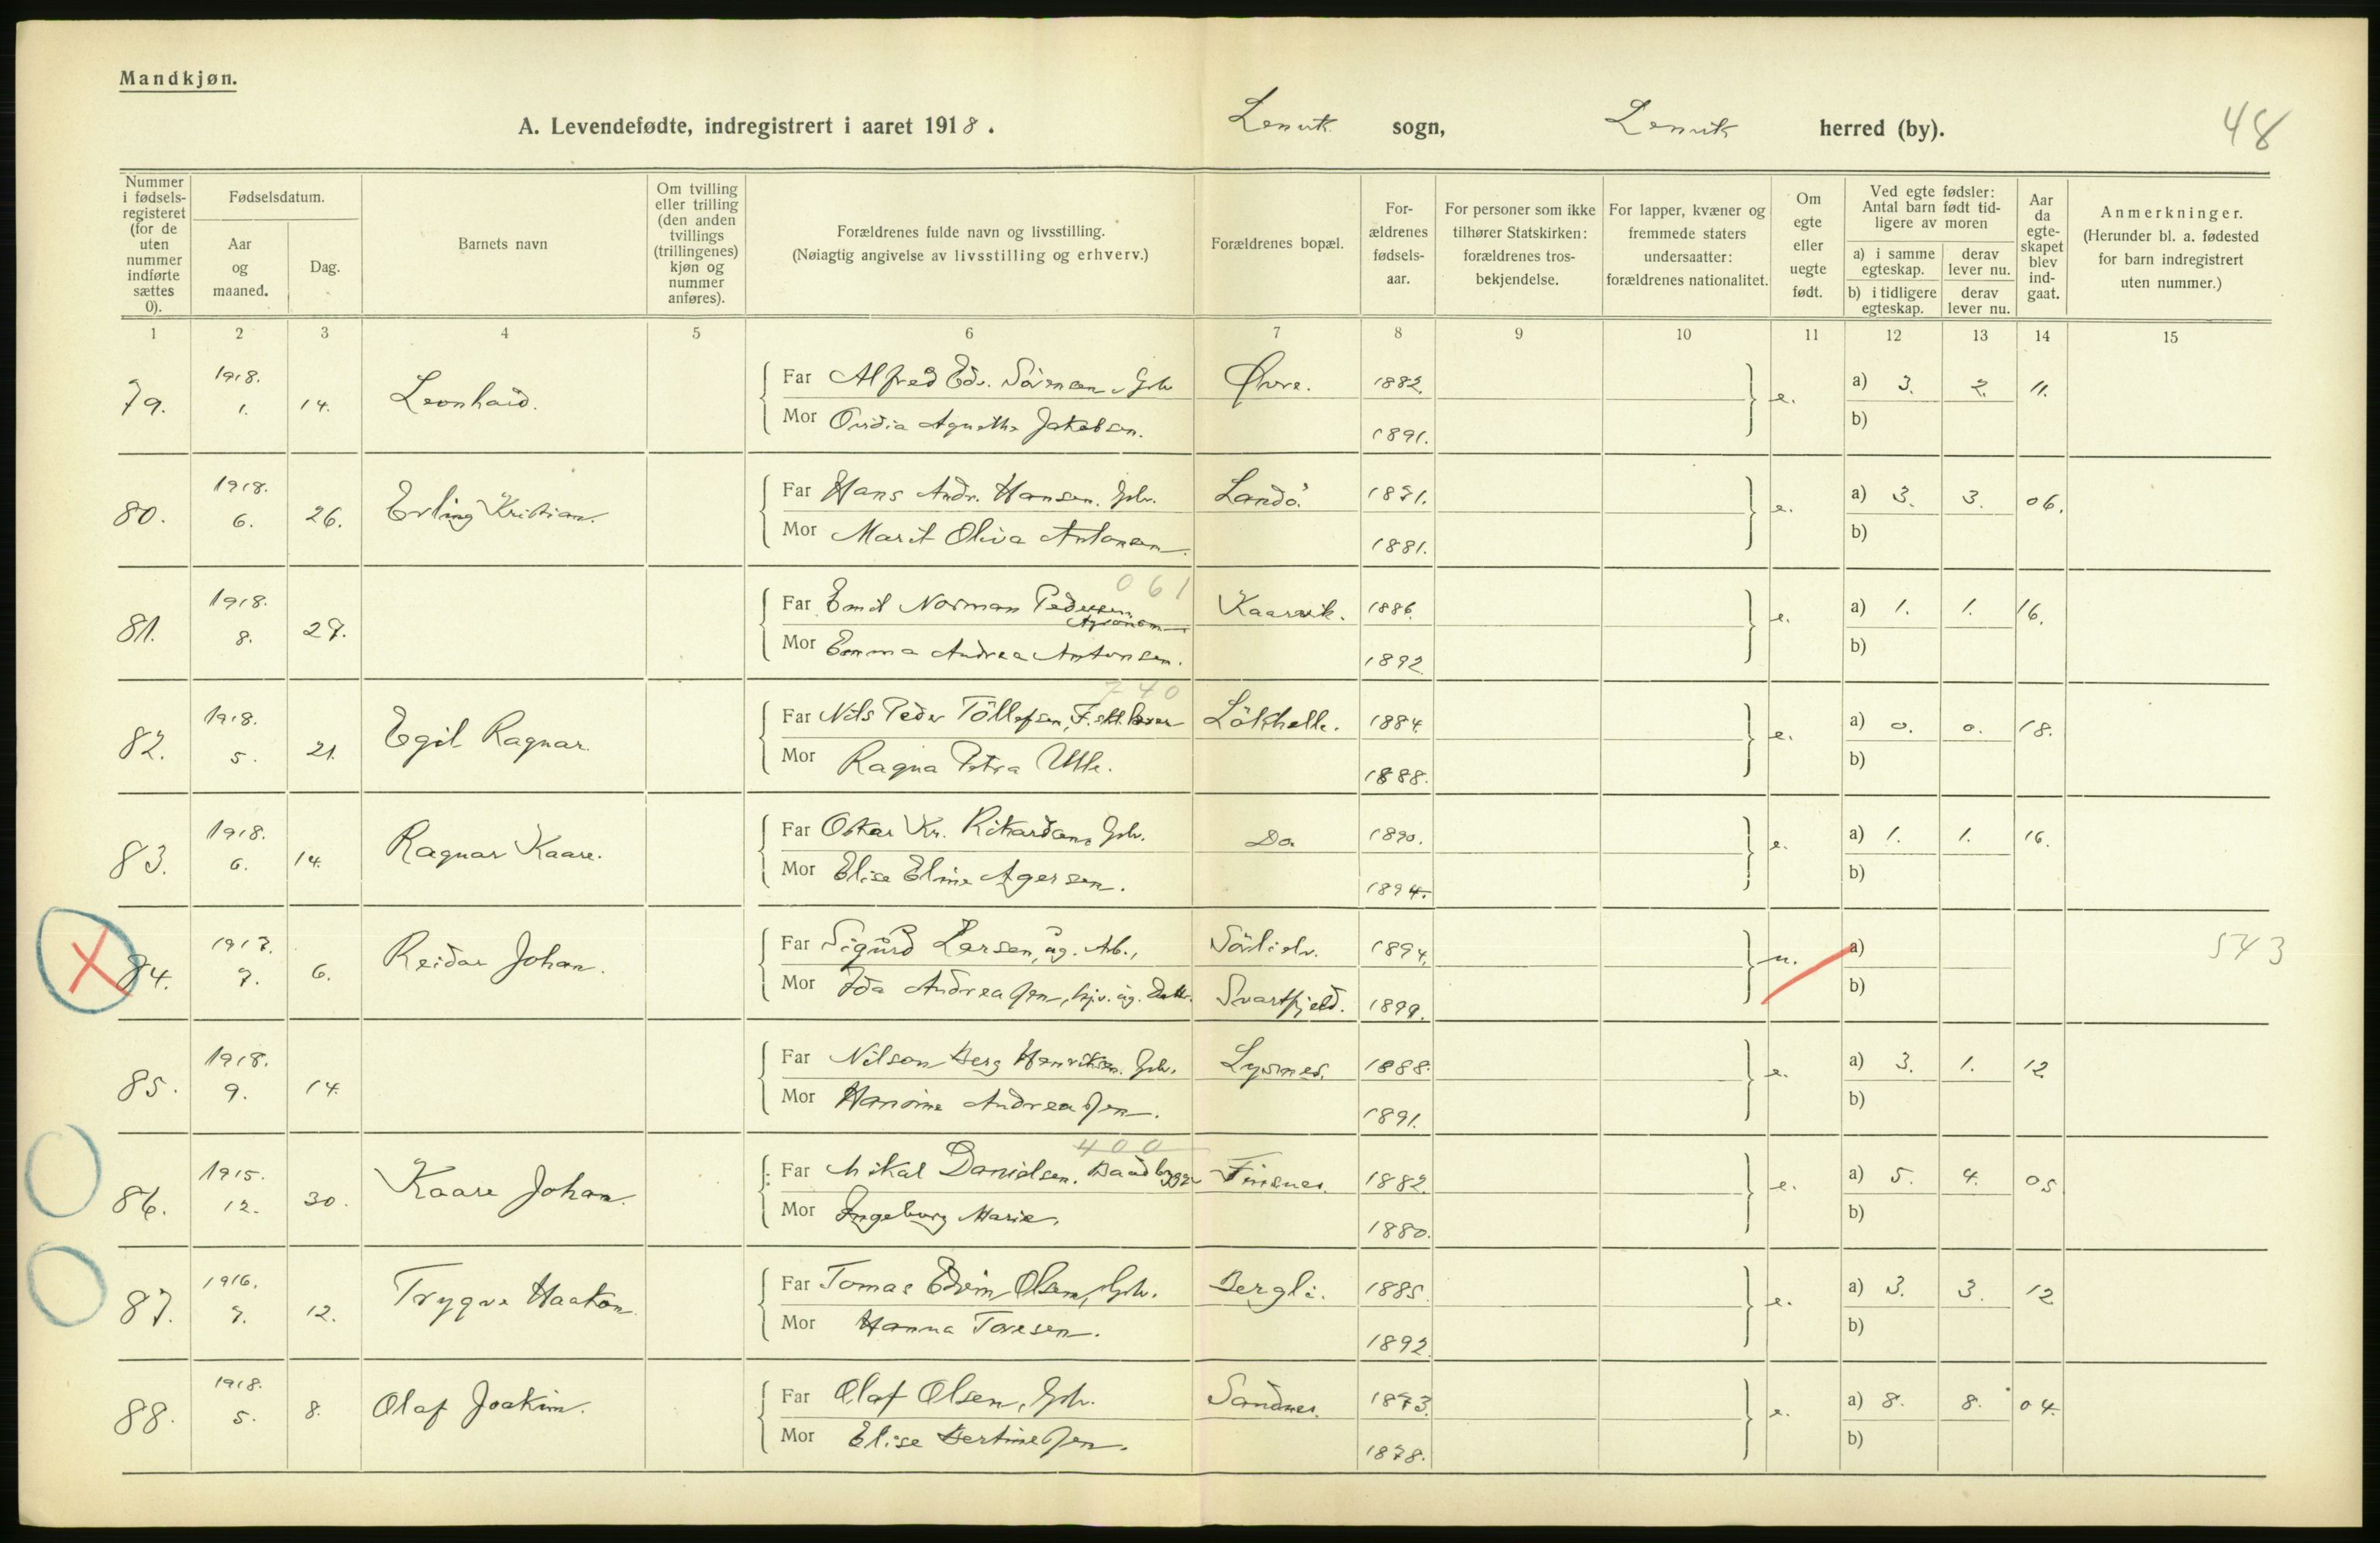 Mandkjøn.
A. Levendefødte, indregistrert i aaret 1918. Lenvik sogn, Lenvik herred (by). 48
Nummer i fødsels-registeret (for de uten nummer indførte sættes 0).
Fødselsdatum.
Aar og maaned.
Dag.
Barnets navn
Om tvilling eller trilling (den anden tvillings (trillingenes) kjøn og nummer anføres).
Forældrenes fulde navn og livsstilling.
(Nøiagtig angivelse av livsstilling og erhverv.)
Forældrenes bopæl.
For-ældrenes fødsels-aar.
For personer som ikke tilhører Statskirken: forældrenes tros-bekjendelse.
For lapper, kvæner og fremmede staters undersaatter: forældrenes nationalitet.
Om egte eller uegte født.
Ved egte fødsler: Antal barn født tid-ligere av moren
a) i samme egteskap.
derav lever nu.
b) i tidligere egteskap.
derav lever nu.
Aar da egte-skapet blev ind-gaat.
Anmerkninger.
(Herunder bl. a. fødested for barn indregistrert uten nummer.)
1 2 3 4 5 6 7 8 9 10 11 12 13 14 15
79. 1918. 1. 14. Leonhard. Far Alfred Edv. Sörensen, Gbr. Øvre. 1882. e. a) 3. 2. 11.
Mor Ovidia Agnethe Jakobsen. 1891. b)
80. 1918. 6. 26. Erling Kristian. Far Hans Andr. Hansen. Gbr. Landö. 1871. e. a) 3. 3. 06.
Mor Marit Oliva Antonsen. 1881. b)
061
81. 1918. 8. 27. Far Emil Norman Pedersen, Agronom Kaarvik. 1886. e. a) 1. 1. 16.
Mor Emma Andrea Antonsen. 1892. b)
740
82. 1918. 5. 21. Egil Ragnar. Far Nils Peder Töllefsen, Lökhelle. 1884. e. a) 0. 0. 18.
Mor Ragna Petra 1888. b)
83. 1918. 6. 14. Ragnar Kaare. Far Oskar Kr. Rikardsen, Gbr. Do 1890. e. a) 1. 1. 16.
Mor Elise Eline Agersen. 1894. b)
84. 1917. 7. 6. Reidar Johan. Far Sigurd Larsen, ug. Arb., Sörlielv. 1894. u. a) 543
Mor Ida Andreassen, hjv. ug. Datt. Svartfjeld. 1899. b)
85. 1918. 9. 14. Far Nilson Berg Henriksen. Gbr. Lysnes. 1888. e. a) 3. 1. 12
Mor Hansine Andreassen. 1891. b)
400
86. 1915. 12. 30. Kaare Johan. Far Mikal Danielsen. Baadbygger Finsnes. 1882. e. a) 5. 4. 05
Mor Ingeborg Marie. 1880. b)
87. 1916. 7. 12. Trygve Haakon. Far Tomas Edvin Olsen, Gbr. Bergli. 1885. e. a) 3. 3. 12
Mor Hanna Toresen. 1892. b)
88. 1918. 5. 8. Olaf Joakim. Far Olaf Olsen, Gbr. Sandnes. 1873. e. a) 8. 8. 04.
Mor Elise Bertinessen. 1878. b)